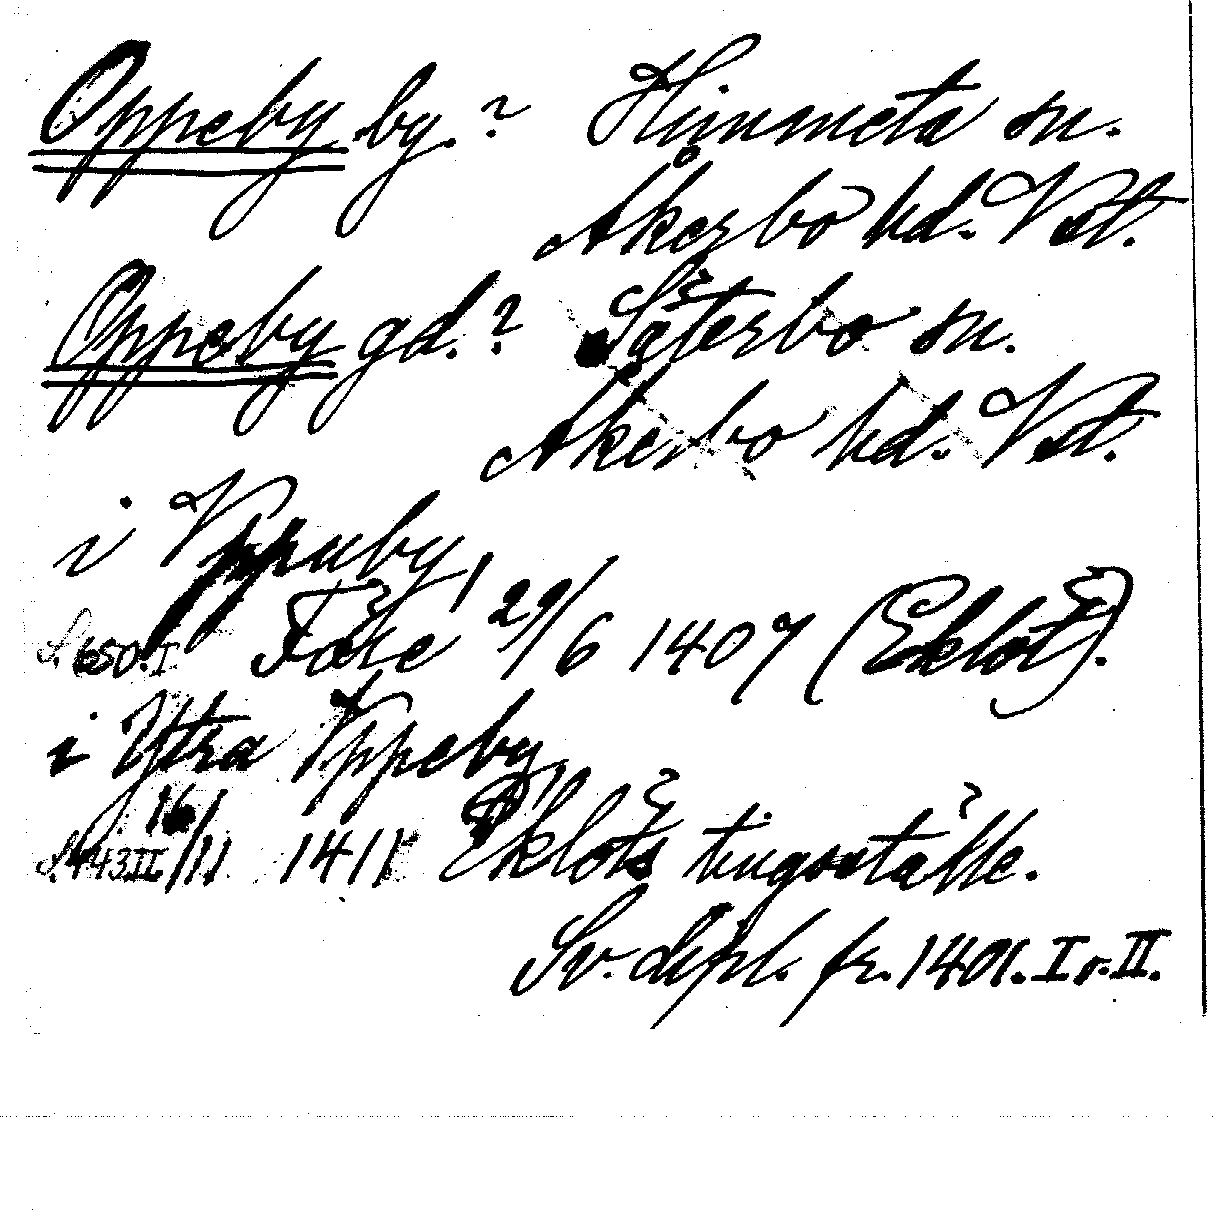 Oppeby by.? Himmeta sn.
Åkerbo hd. Vst.
Oppeby gd.? Säterbo sn.
Åkerbo hd. Vst.
i Vppuby,
S. 650. I. 29/6 1407 (Eklöt).
i Ytra Vppeby,
S. 443 II 16/11 1411 Eklöts tingställe.
Sv. dipl. fr. 1401. I o. II.